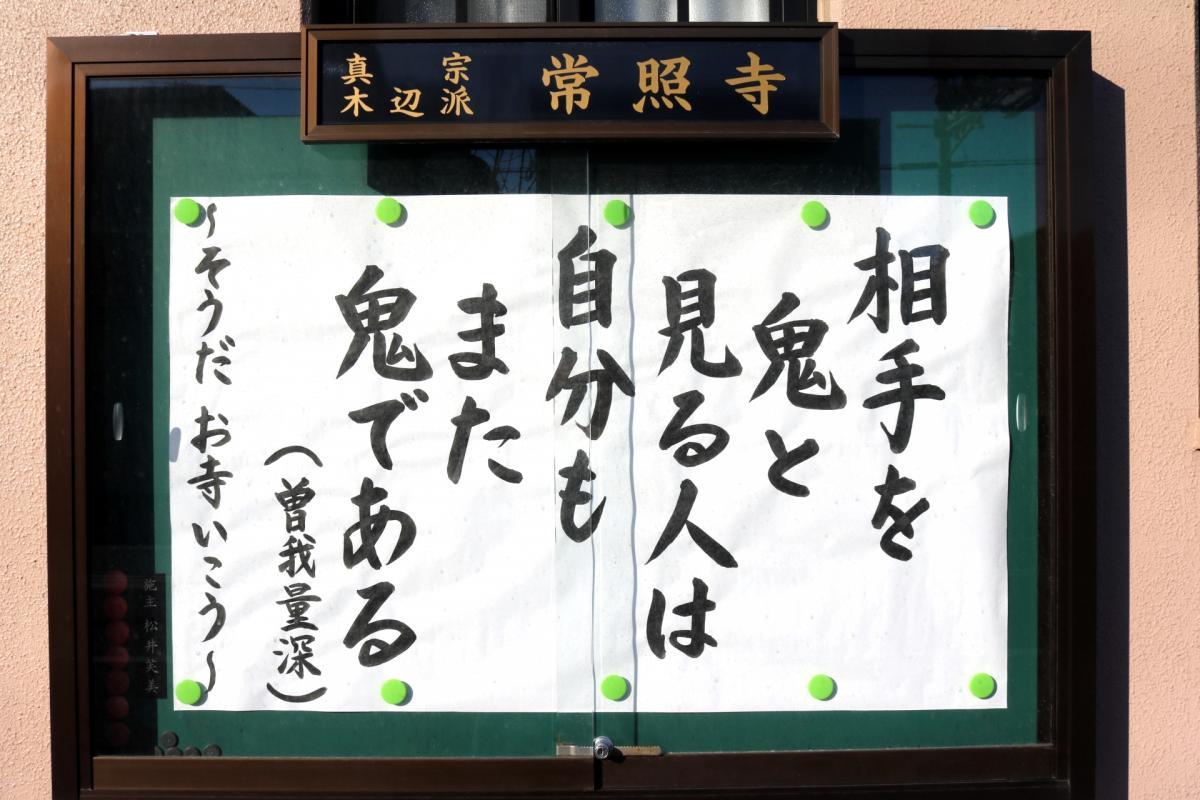 真宗
木辺派
常照寺
相手を
鬼と
見る人は
自分も
また
鬼である
（曽我量深）
～そうだ お寺いこう～
施主 松井芙美